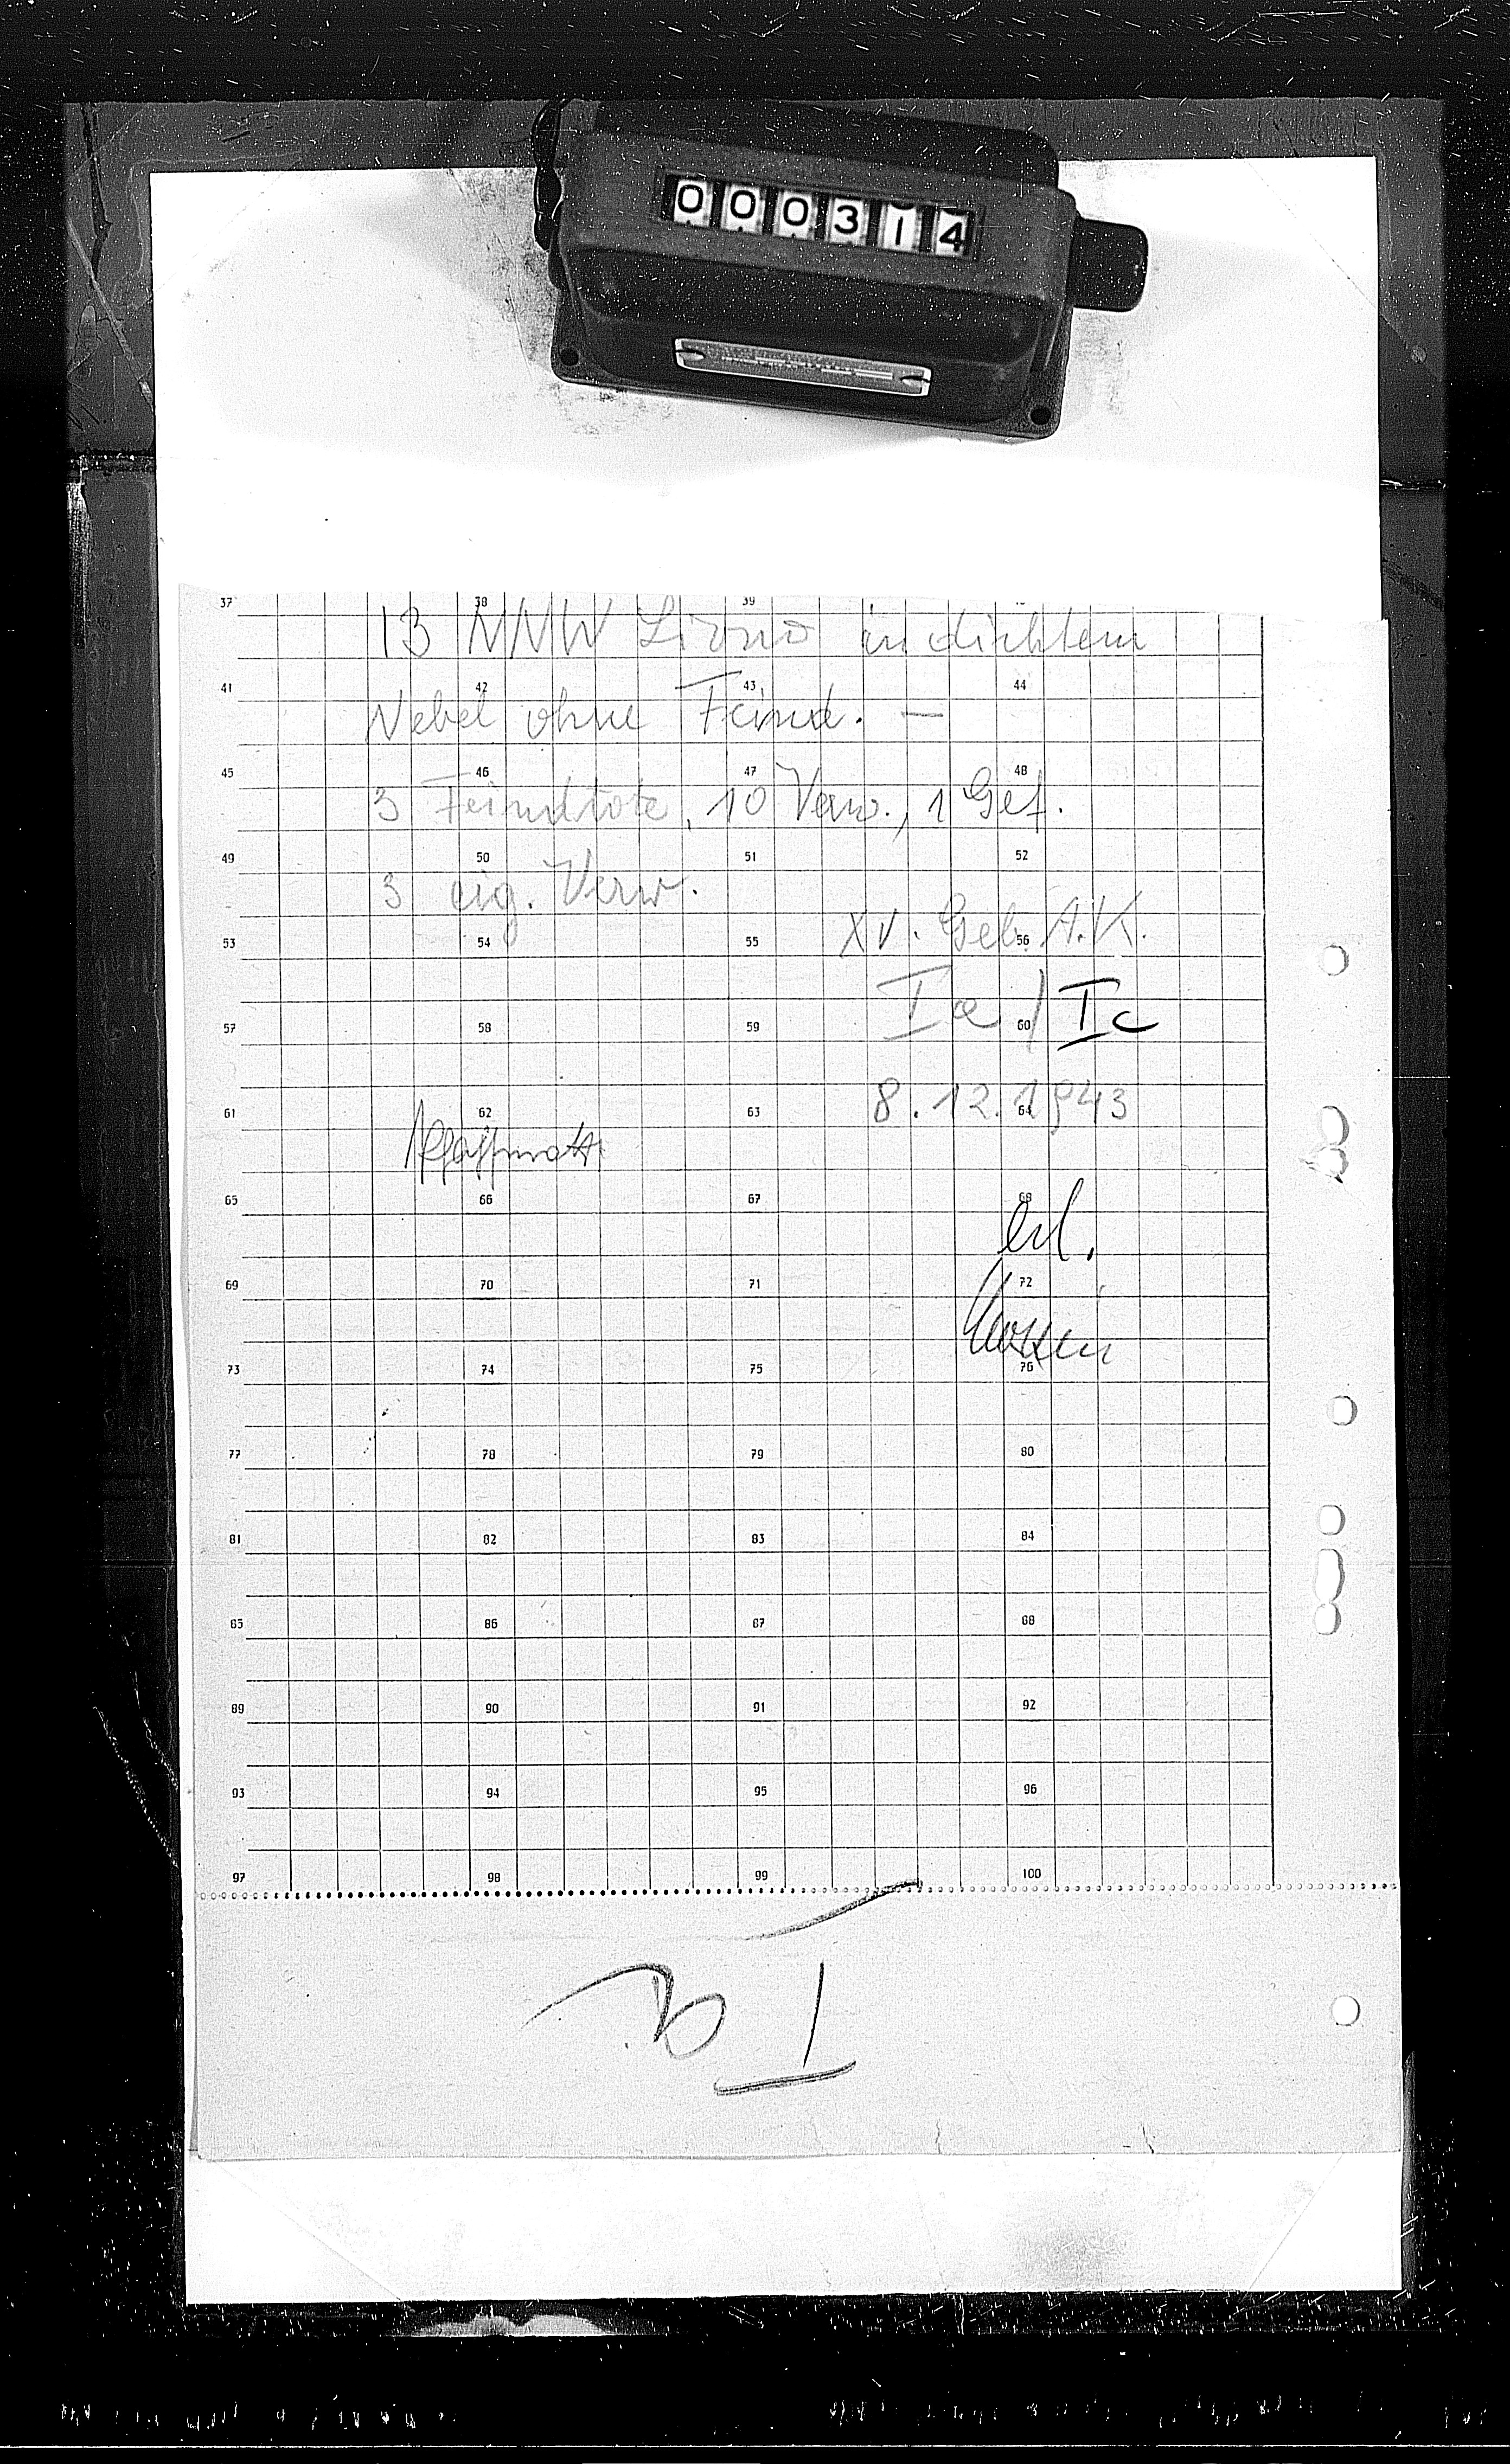 000314
37 38 39
13 NNW Livno in dichtem
41 42 43 44
Nebel ohne Feind. —
45 46 47 48
3 Feindtote, 10 Verw., 1 Gef.
49 50 51 52
3 eig. Verw.
XV. Geb. A.K.
53 54 55 56
Ia / Ic
57 58 59 60
8.12.1943
61 62 63 64
65 66 67 68
erl.
69 70 71 72
73 74 75 76
77 78 79 80
81 82 83 84
85 86 87 88
89 90 91 92
93 94 95 96
97 98 99 100
Ia